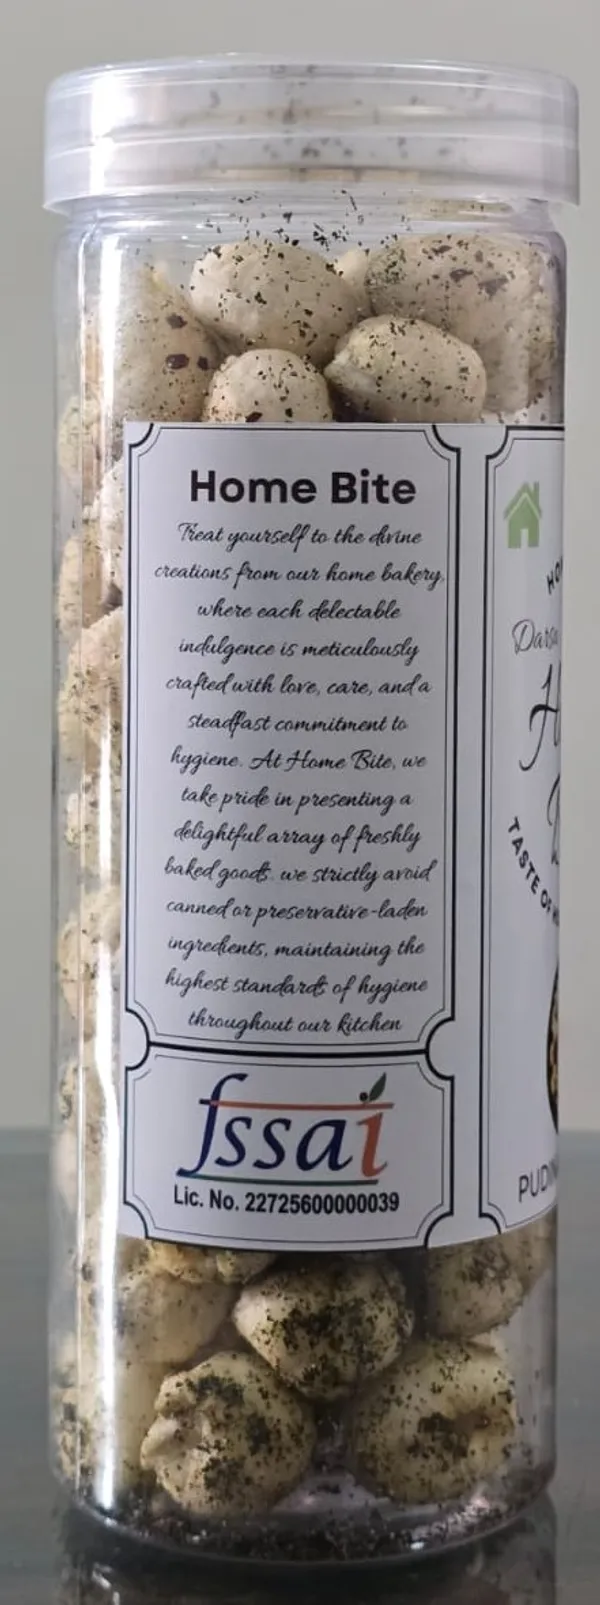 Home Bite
Treat yourself to the divine
creations from our home bakery,
where each delectable
indulgence is meticulously
crafted with love, care, and a
steadfast commitment to
hygiene. At Home Bite, we
take pride in presenting a
delightful array of freshly
baked goods. we strictly avoid
canned or preservative-laden
ingredients, maintaining the
highest standards of hygiene
throughout our kitchen
fssai
Lic. No. 22725600000039
TASTE OF